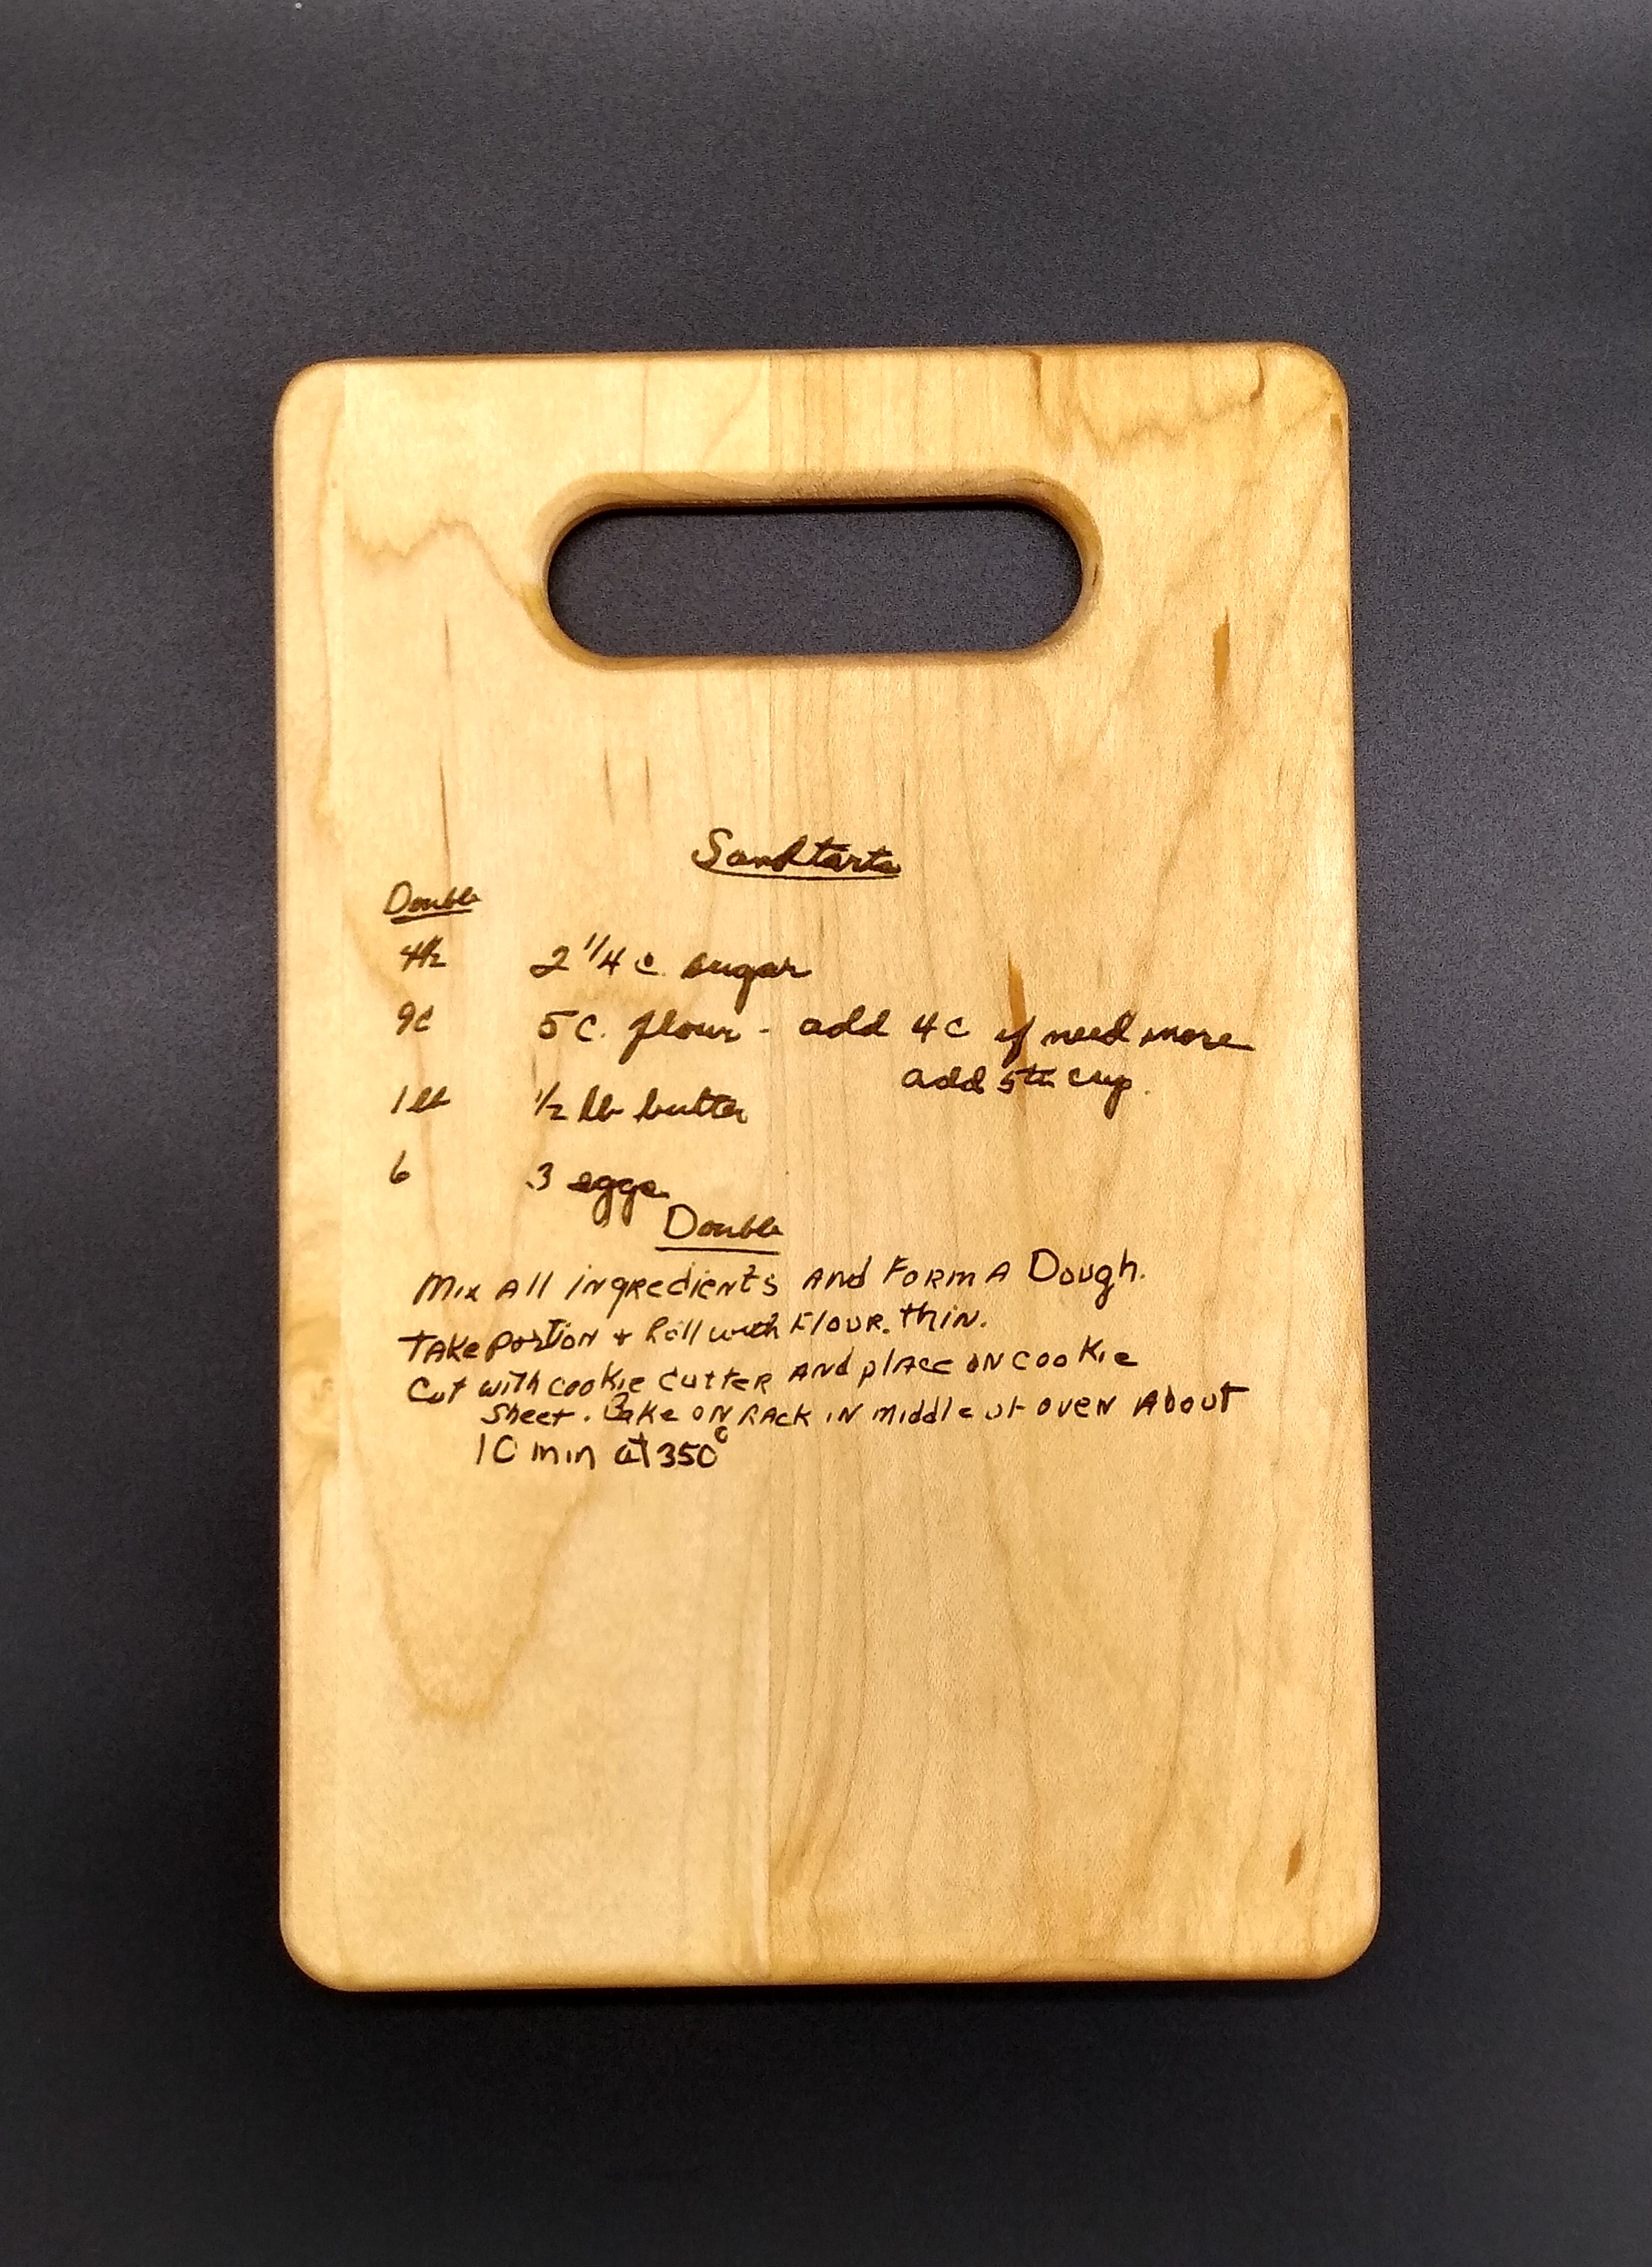 Sandtarts
Double
4 1/2 2 1/4 c. sugar
9c 5 C. flour - add 4c if need more
add 5th cup.
1 lb 1/2 lb butter
6 3 eggs
Double
Mix All ingredients And Form A Dough.
TAke portion + Roll with Flour. thin.
Cut with cookie cutter And place on cookie
Sheet. Bake on Rack in middle of oven About
10 min at 350°